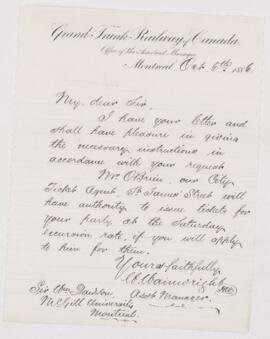 Grand Trunk Railway of Canada.
Office of the Assistant Manager
Montreal, Oct 6th 1886
My dear Sir,
I have your letter and
shall have pleasure in giving
the necessary instructions in
accordance with your request
Mr O'Brien, our City
Ticket Agent, St James Street will
have authority to issue tickets for
your party at the Saturday
excursion rate, if you will apply
to him for them.
Yours faithfully
W. Wainwright
Asst Manager.
Sir Wm Dawson
McGill University
Montreal